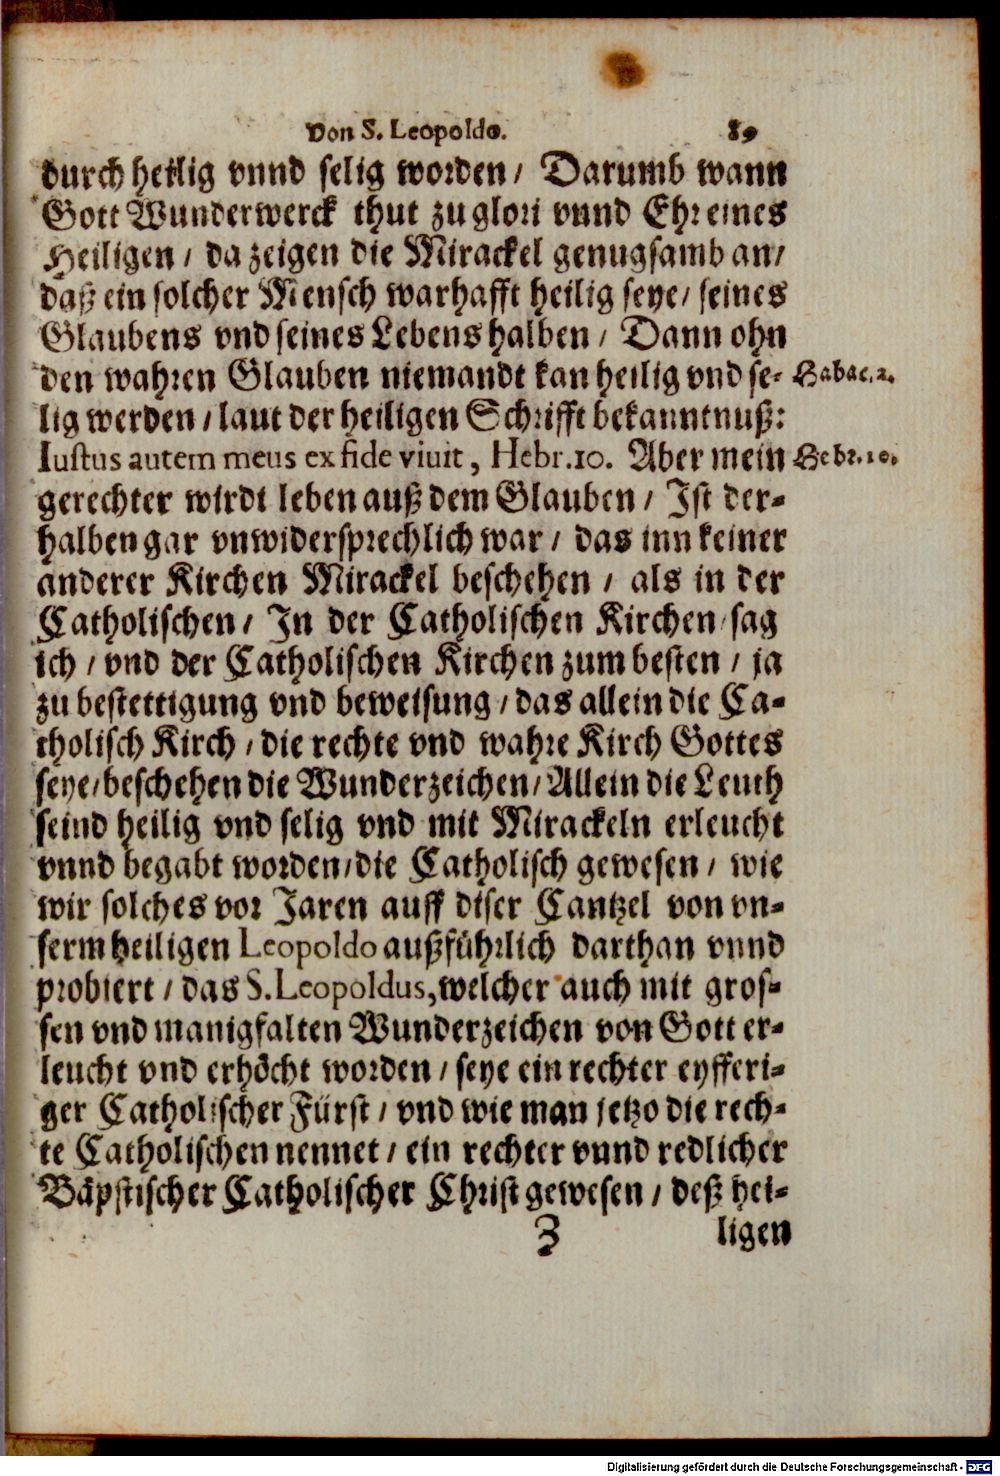 Von S. Leopoldo. 89
durch heilig vnnd selig worden / Darumb wann
Gott Wunderwerck thut zu glori vnnd Ehr eines
Heiligen / da zeigen die Mirackel genugsamb an /
daß ein solcher Mensch warhafft heilig seye / seines
Glaubens vnd seines Lebens halben / Dann ohn
den wahren Glauben niemandt kan heilig vnd se- Habac. 2.
lig werden / laut der heiligen Schrifft bekanntnuß:
Iustus autem meus ex fide viuit, Hebr. 10. Aber mein Hebr. 10.
gerechter wirdt leben auß dem Glauben / Ist der-
halben gar vnwidersprechlich war / das inn keiner
anderer Kirchen Mirackel beschehen / als in der
Catholischen / In der Catholischen Kirchen / sag
ich / vnd der Catholischen Kirchen zum besten / ja
zu bestettigung vnd beweisung / das allein die Ca-
tholisch Kirch / die rechte vnd wahre Kirch Gottes
seye / beschehen die Wunderzeichen / Allein die Leuth
seind heilig vnd selig vnd mit Mirackeln erleucht
vnnd begabt worden / die Catholisch gewesen / wie
wir solches vor Jaren auff diser Cantzel von vn-
serm heiligen Leopoldo außführlich darthan vnnd
probiert / das S. Leopoldus, welcher auch mit gros-
sen vnd manigfalten Wunderzeichen von Gott er-
leucht vnd erhöcht worden / seye ein rechter eyfferi-
ger Catholischer Fürst / vnd wie man jetzo die rech-
te Catholischen nennet / ein rechter vnnd redlicher
Bäpstischer Catholischer Christ gewesen / deß hei-
Z ligen
Digitalisierung gefördert durch die Deutsche Forschungsgemeinschaft - DFG